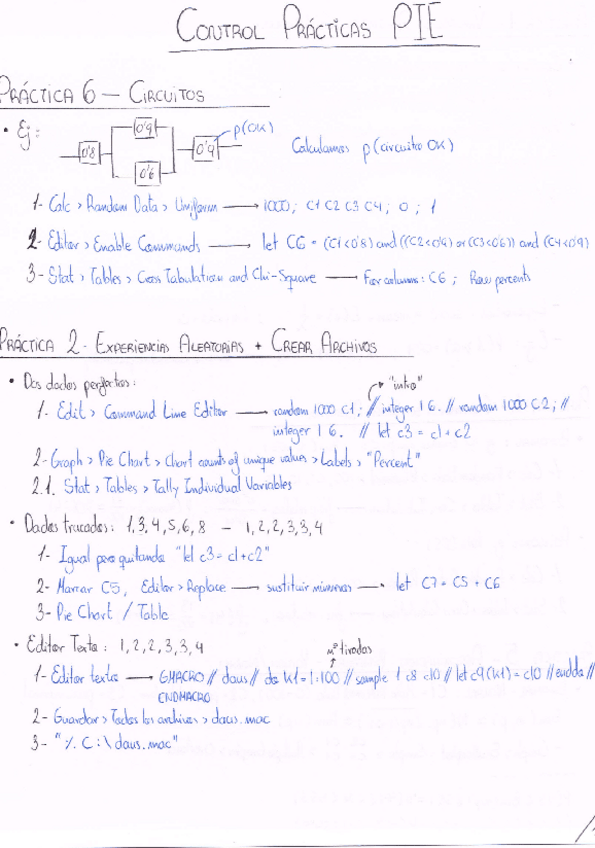 CONTROL PRÁCTICAS PIE
PRÁCTICA 6 — CIRCUITOS
• Ej:
0'8
0'9
0'6
0'9
p(OK)
Calculamos p(circuito OK)
1- Calc > Random Data > Uniform → 1000; C1 C2 C3 C4; 0; 1
2- Editor > Enable Commands → let C6 = (C1<0'8) and ((C2<0'9) or (C3<0'6)) and (C4<0'9)
3- Stat > Tables > Cross Tabulation and Chi-Square → For columns: C6; Row percents
PRÁCTICA 2 - EXPERIENCIAS ALEATORIAS + CREAR ARCHIVOS
• Dos dados perfectos:
"intro"
1- Edit > Command Line Editor → random 1000 C1; // integer 1 6. // random 1000 C2; //
integer 1 6. // let c3 = c1 + c2
2- Graph > Pie Chart > Chart counts of unique values > Labels > "Percent"
2.1. Stat > Tables > Tally Individual Variables
• Dados trucados: 1,3,4,5,6,8 — 1,2,2,3,3,4
1- Igual pero quitando "let c3 = c1 + c2"
2- Marcar C5, Editor > Replace → sustituir números → let C7 = C5 + C6
3- Pie Chart / Table
• Editor Texto: 1,2,2,3,3,4
nº tiradas
1- Editor texto → GMACRO // daus // do k1=1:100 // sample 1 c8 c10 // let c9(k1) = c10 // enddo //
ENDMACRO
2- Guardar > Todos los archivos > daus.mac
3- "%C:\daus.mac"